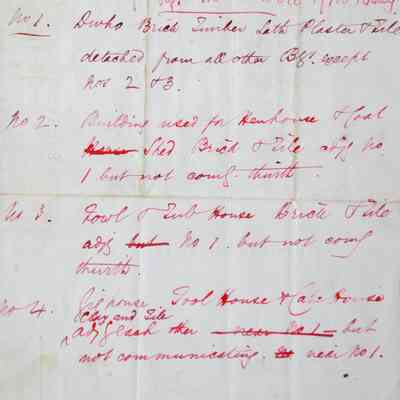 No 1. Dwho Brick Timber Lath Plaster & Tile
detached from all other Bgs. except
Nos 2 & 3.
No 2. Building used for Henhouse & Coal
House Shed Brick & Tile adjg No.
1 but not comg. thwith.
No 3. Fowl & Tub House Brick & Tile
adjg but No 1. but not comg
thwith.
No 4. Gighouse Tool House & Cake House
Clay and Tile
adjg each other near No 1 but
not communicating. near No 1.